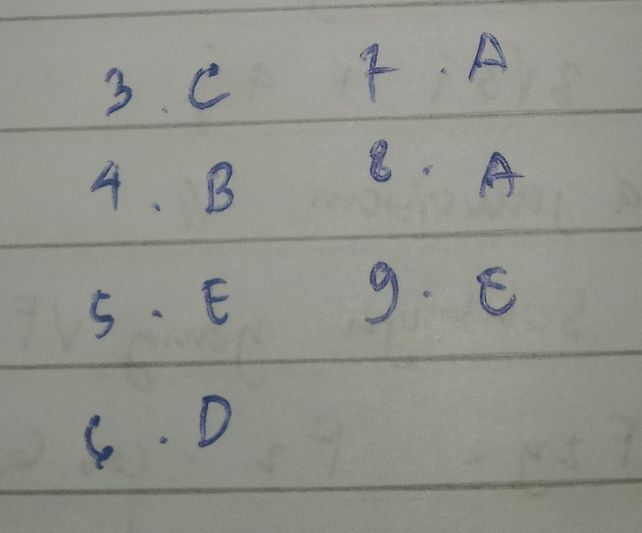 3. C
4. B
5. E
6. D
7. A
8. A
9. E